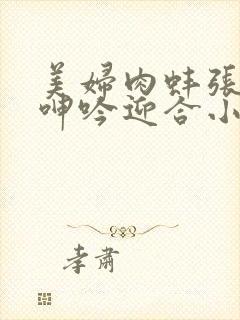 美婦肉蚌張
呻吟迎合小
李肅